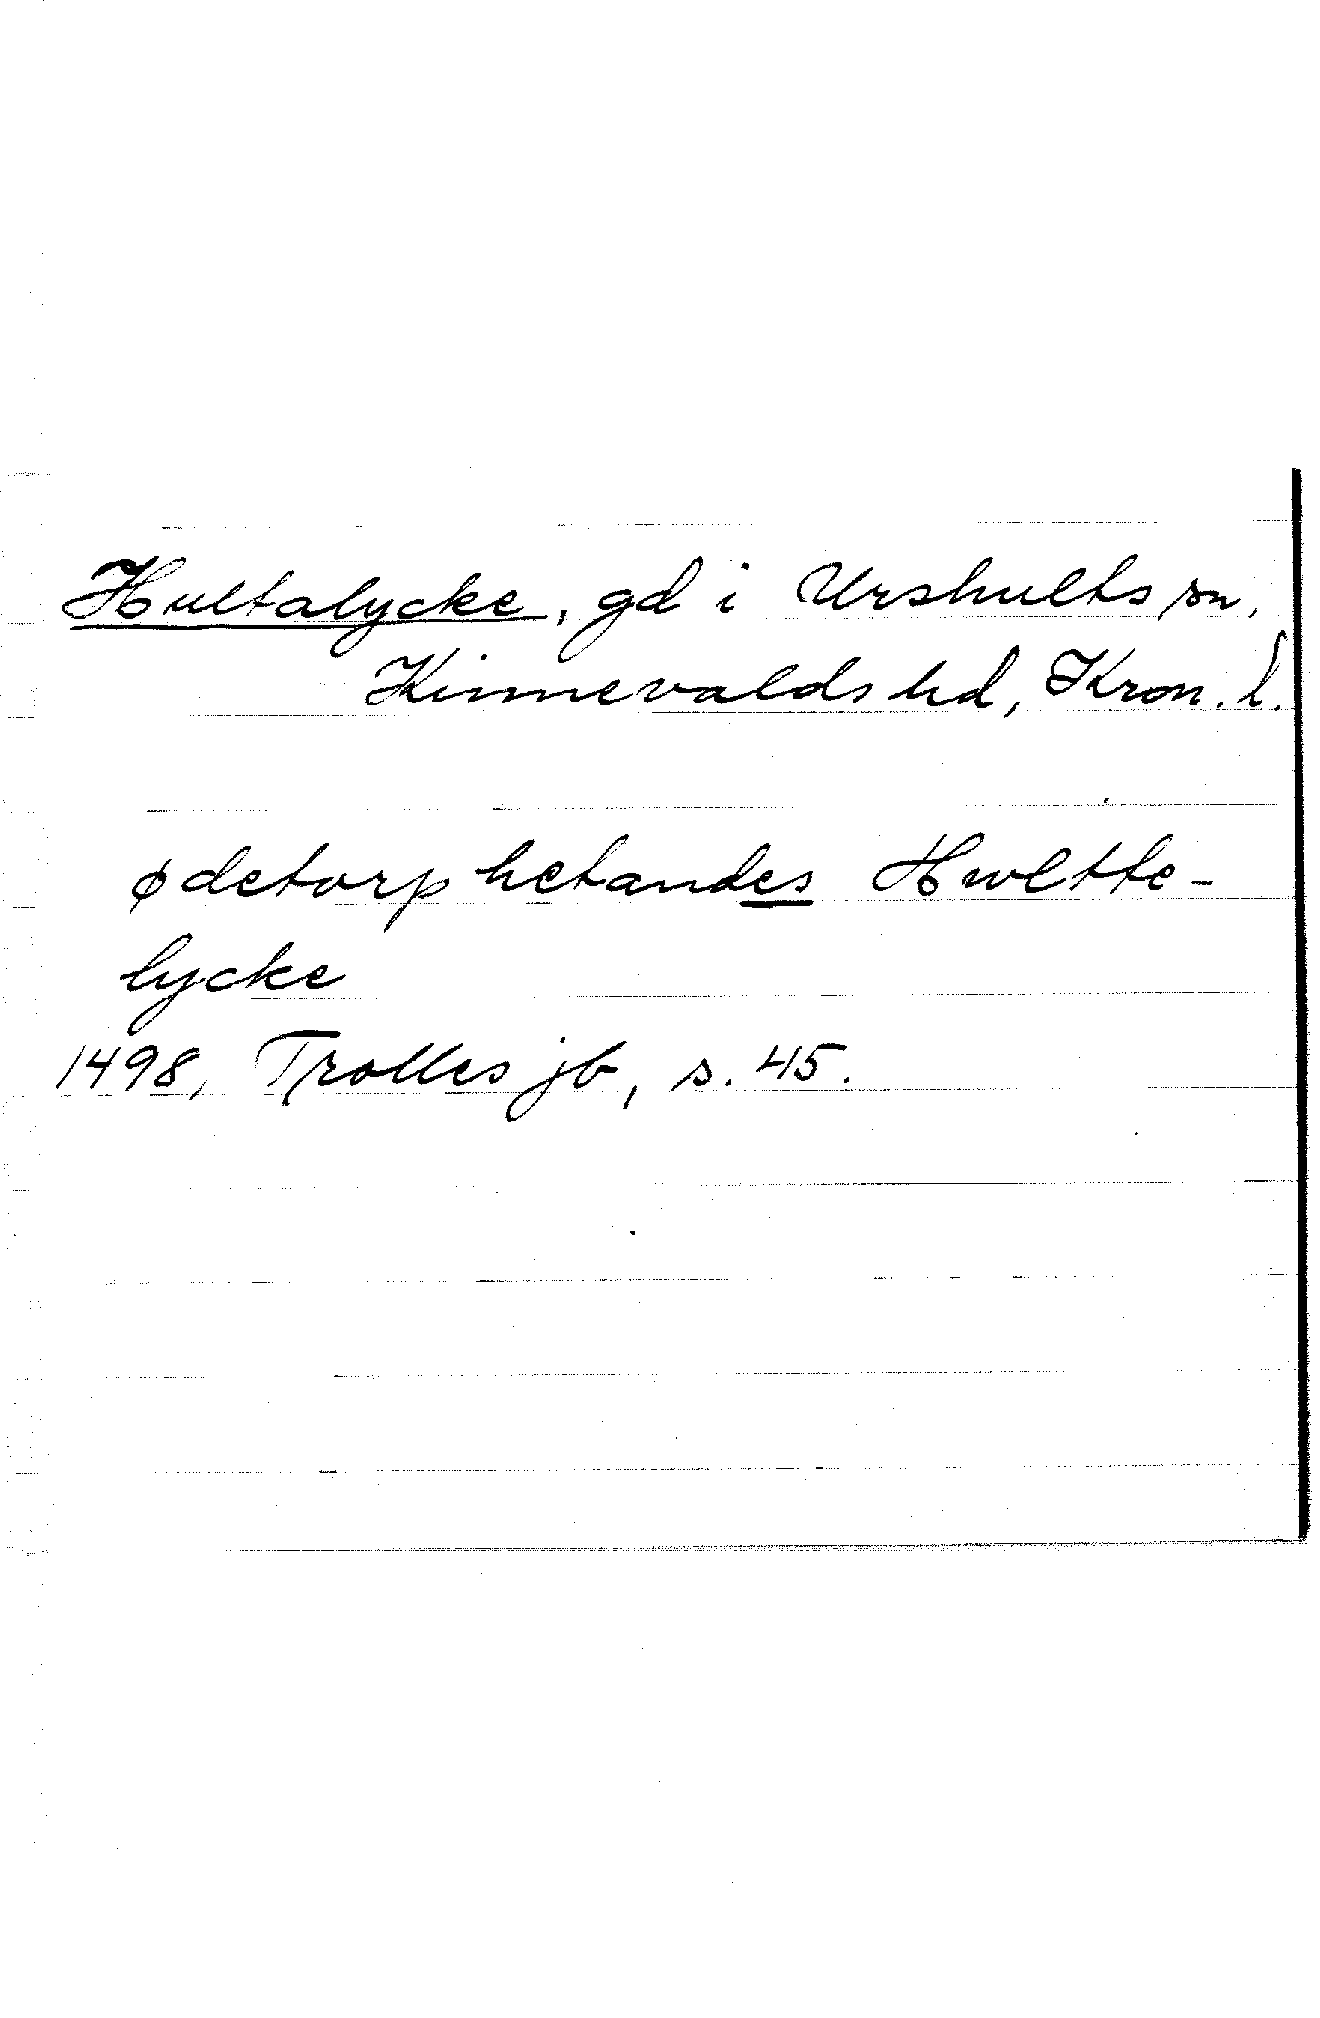 Hultalycke, gd i Urshults sn,
Kinnevalds hd, Kron. l.
ødetorp hetandes Hwltte-
lycke
1498, Trolles jb, s. 45.